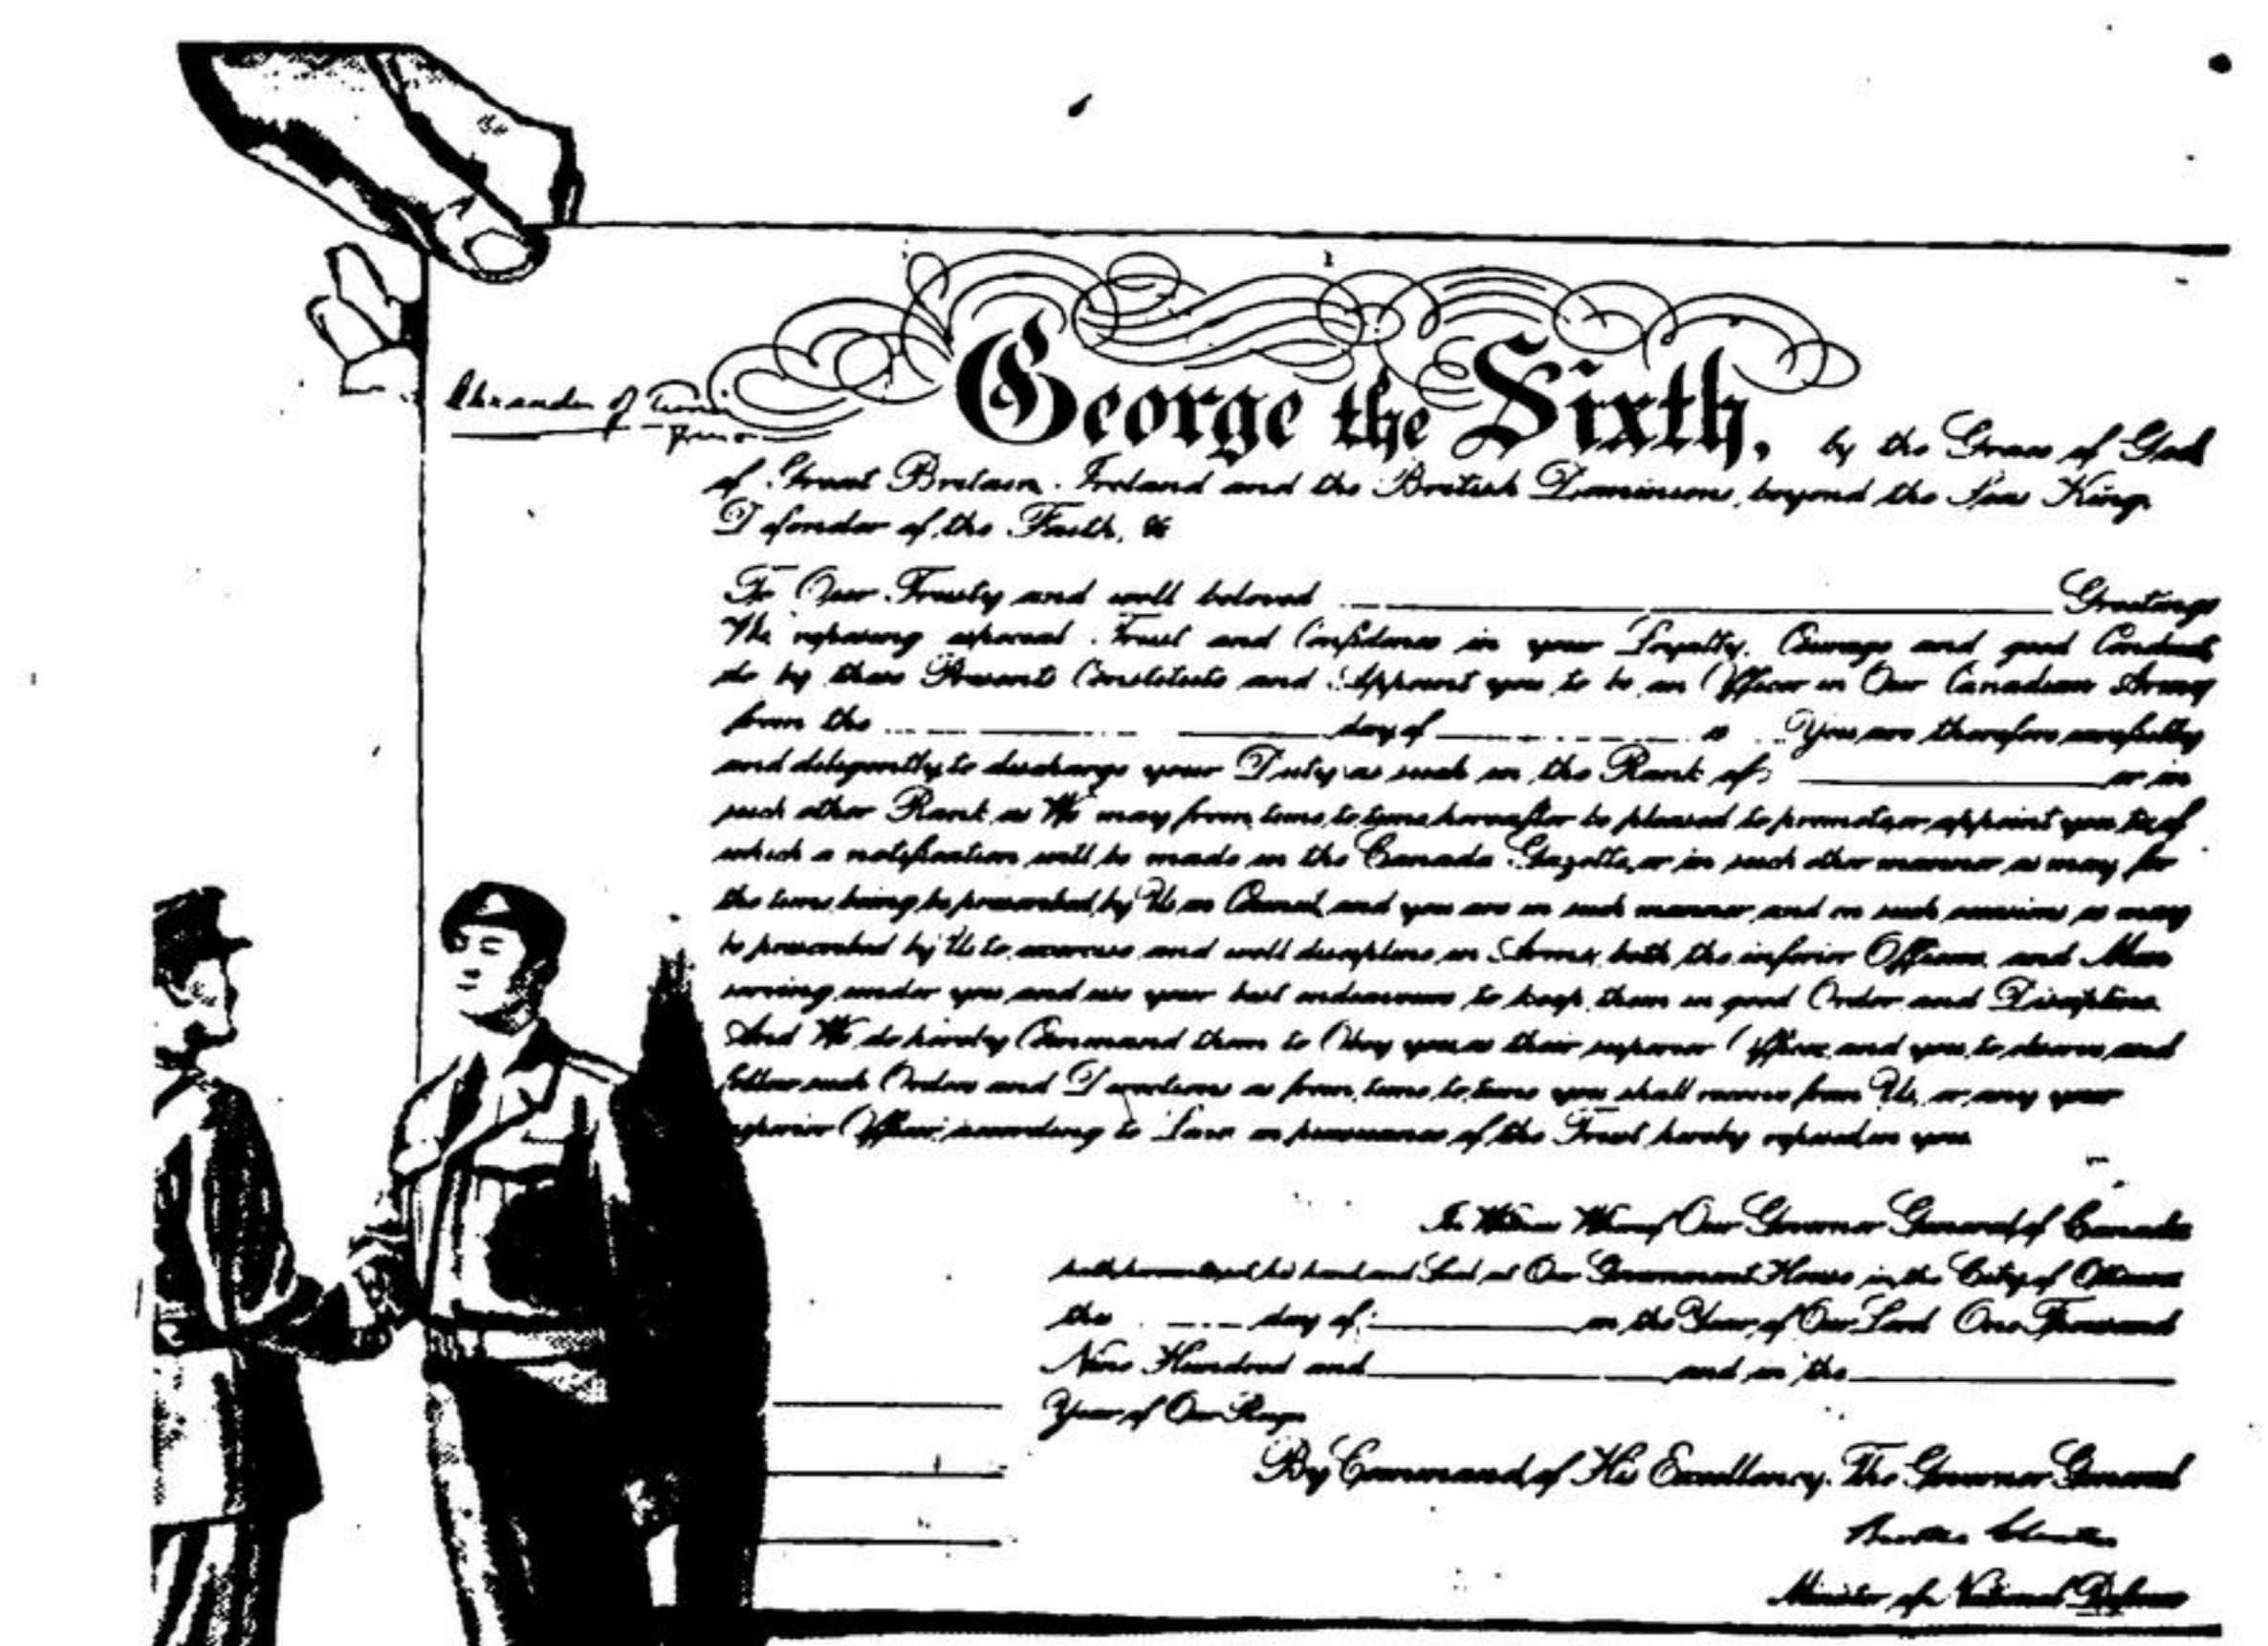 Alexander of Tunis
George the Sixth, by the Grace of God
of Great Britain, Ireland and the British Dominions beyond the Seas King,
Defender of the Faith, &c
To Our Trusty and well beloved Greetings
We reposing especial Trust and Confidence in your Loyalty, Courage and good Conduct,
do by these Presents Constitute and Appoint you to be an Officer in Our Canadian Army
from the day of 19 You are therefore carefully
and diligently to discharge your Duty as such in the Rank of or in
such other Rank as We may from time to time hereafter be pleased to promote or appoint you to, of
which a notification will be made in the Canada Gazette, or in such other manner as may for
the time being be prescribed by Us in Council, and you are in such manner and on such occasions as may
be prescribed by Us to exercise and well discipline in Arms, both the inferior Officers and Men
serving under you and use your best endeavours to keep them in good Order and Discipline.
And We do hereby Command them to Obey you as their superior Officer, and you to observe and
follow such Orders and Directions as from time to time you shall receive from Us, or any your
superior Officer according to Law in pursuance of the Trust hereby reposed in you.
In Witness Whereof Our Governor General of Canada
hath hereunto set his hand and Seal at Our Government House in the City of Ottawa
the day of in the Year of Our Lord One Thousand
Nine Hundred and and in the
Year of Our Reign
By Command of His Excellency, The Governor General
Brooke Claxton
Minister of National Defence